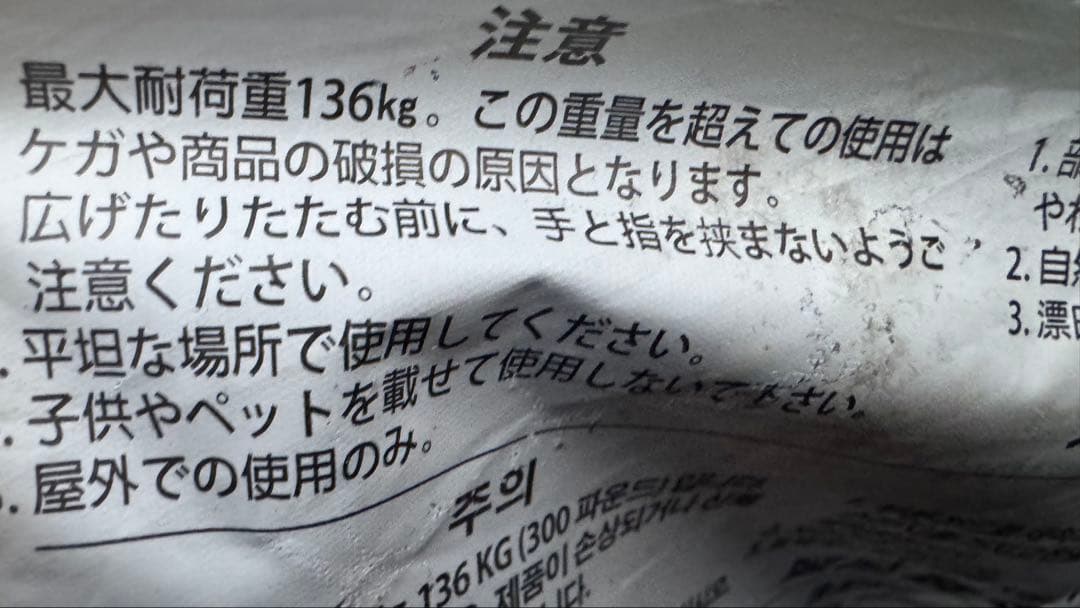 注意
最大耐荷重136kg。この重量を超えての使用は
ケガや商品の破損の原因となります。
広げたりたたむ前に、手と指を挟まないようご
注意ください。
平坦な場所で使用してください。
子供やペットを載せて使用しないで下さい。
屋外での使用のみ。
1. 部
や
2. 自然
3. 漂白
주의
136 KG (300 파운드)
제품이 손상되거나